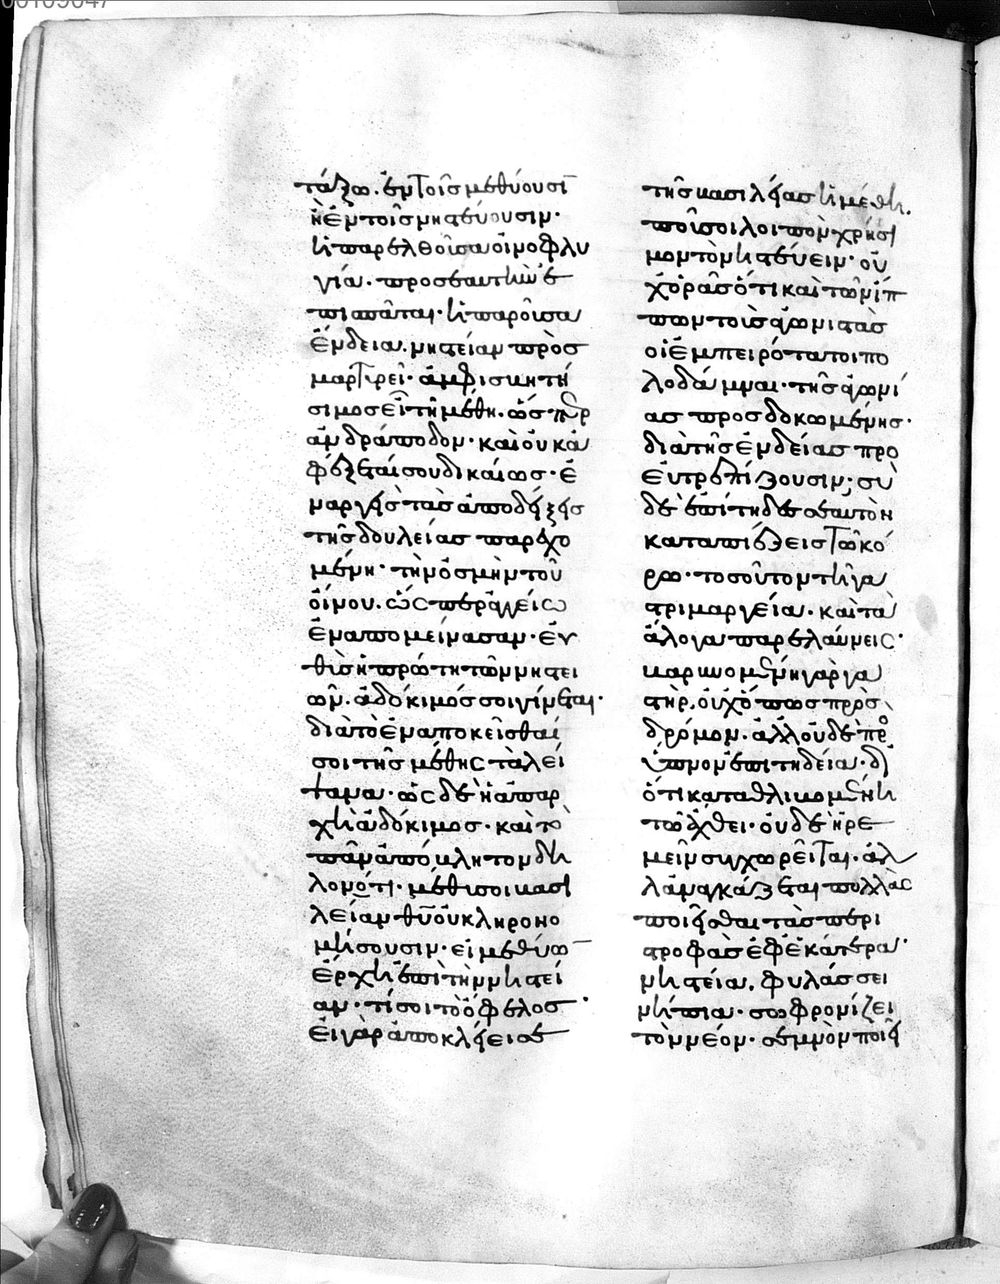 τάξω. ἐν τοῖς μεθύουσῑ
ἢ ἐν τοῖς νηστεύουσιν·
ἡ παρελθοῦσα οἰνοφλυ
γία. προσεαυτὴν ἐ
πισπᾶται· ἡ παροῦσα
ἔνδεια. νηστείαν προσ
μαρτυρεῖ· ἀμφισβητή
σιμος εἶ τῇ μέθῃ. ὥσπερ
ἀνδράποδον· καὶ οὐκ ἀ
φέξεταί σου δικαίως· ἐ
ναργεῖς τὰς ἀποδείξεις
τῆς δουλείας παρεχο
μένη· τὴν ὀσμὴν τοῦ
οἴνου. ὡς περ ἀγγείω
ἐναπομείνασαν· εὐ
θὺς ἡ πρώτη τῶν νηστει
ῶν. ἀδόκιμός σοι γίνεται·
διὰ τὸ ἐναποκεῖσθαί
σοι τῆς μέθης τὰ λεί
ψανα· ὧς δὲ ἡ ἀπαρ
χὴ ἀδόκιμος· καὶ τὸ
πᾶν ἀπόβλητον δη
λονότι· μέθυσοι βασι
λείαν θῦ οὐ κληρονο
μήσουσιν· εἰ μεθύω̄
ἔρχη ἐπὶ τὴν νηστεί
αν· τί σοι τὸ ὄφελος·
εἰ γὰρ ἀποκλείει σε
τῆς βασιλείας ἡ μέθη.
ποῖον σοι λοιπὸν χρήσι
μον τὸ νηστεύειν· οὐ
χ ὁρᾶς ὅτι καὶ τῶν ἵπ
πων τοὺς ἀγωνιστὰς
οἱ ἐμπειρότατοι πο
λοδάμναι· τῆς ἀγωνί
ας προσδοκωμένης·
διὰ τῆς ἐνδείας προ
ευτρεπίζουσιν; σὺ
δὲ ἐπίτηδες σεαυτὸν
καταπιέζεις τῶ κό
ρω· τοσοῦτον τῆ γα
στριμαργεία. καὶ τὰ
ἄλογα παρελαύνεις·
βαρυνομένη γὰρ γα
στὴρ. οὐχ ὅπως πρὸς
δρόμον. ἀλλ οὐδὲ πρὸ
ὕπνον ἐπιτηδεία· δι
ότι καταθλιβομένη
τῶ ἄχθει· οὐδὲ ἠρε
μεῖν συγχωρεῖται· ἀλ
λ ἀναγκάζεται πολλὰς
ποιεῖσθαι τὰς περι
στροφὰς ἐφ ἑκάτερα·
νηστεία. φυλάσσει
νήπια· σωφρονίζει
τὸν νέον· σεμνὸν ποιεῖ